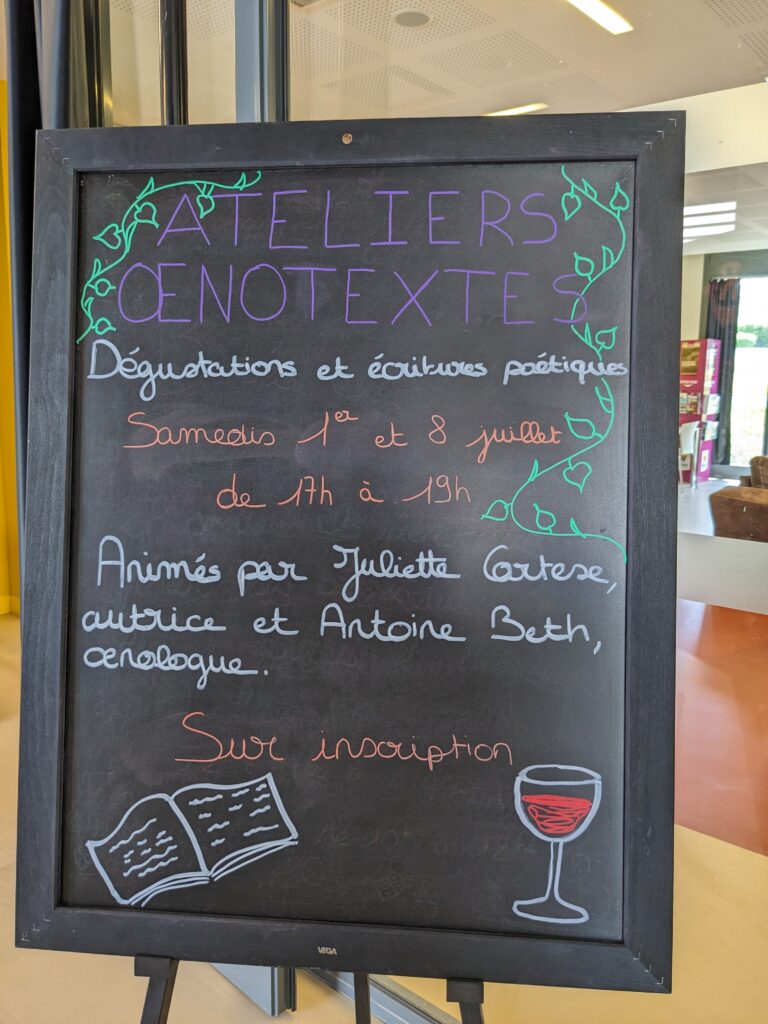 ATELIERS
ŒNOTEXTES
Dégustations et écritures poétiques
Samedis 1er et 8 juillet
de 17h à 19h
Animés par Juliette Cortese,
autrice et Antoine Beth,
œnologue.
Sur inscription
VEGA